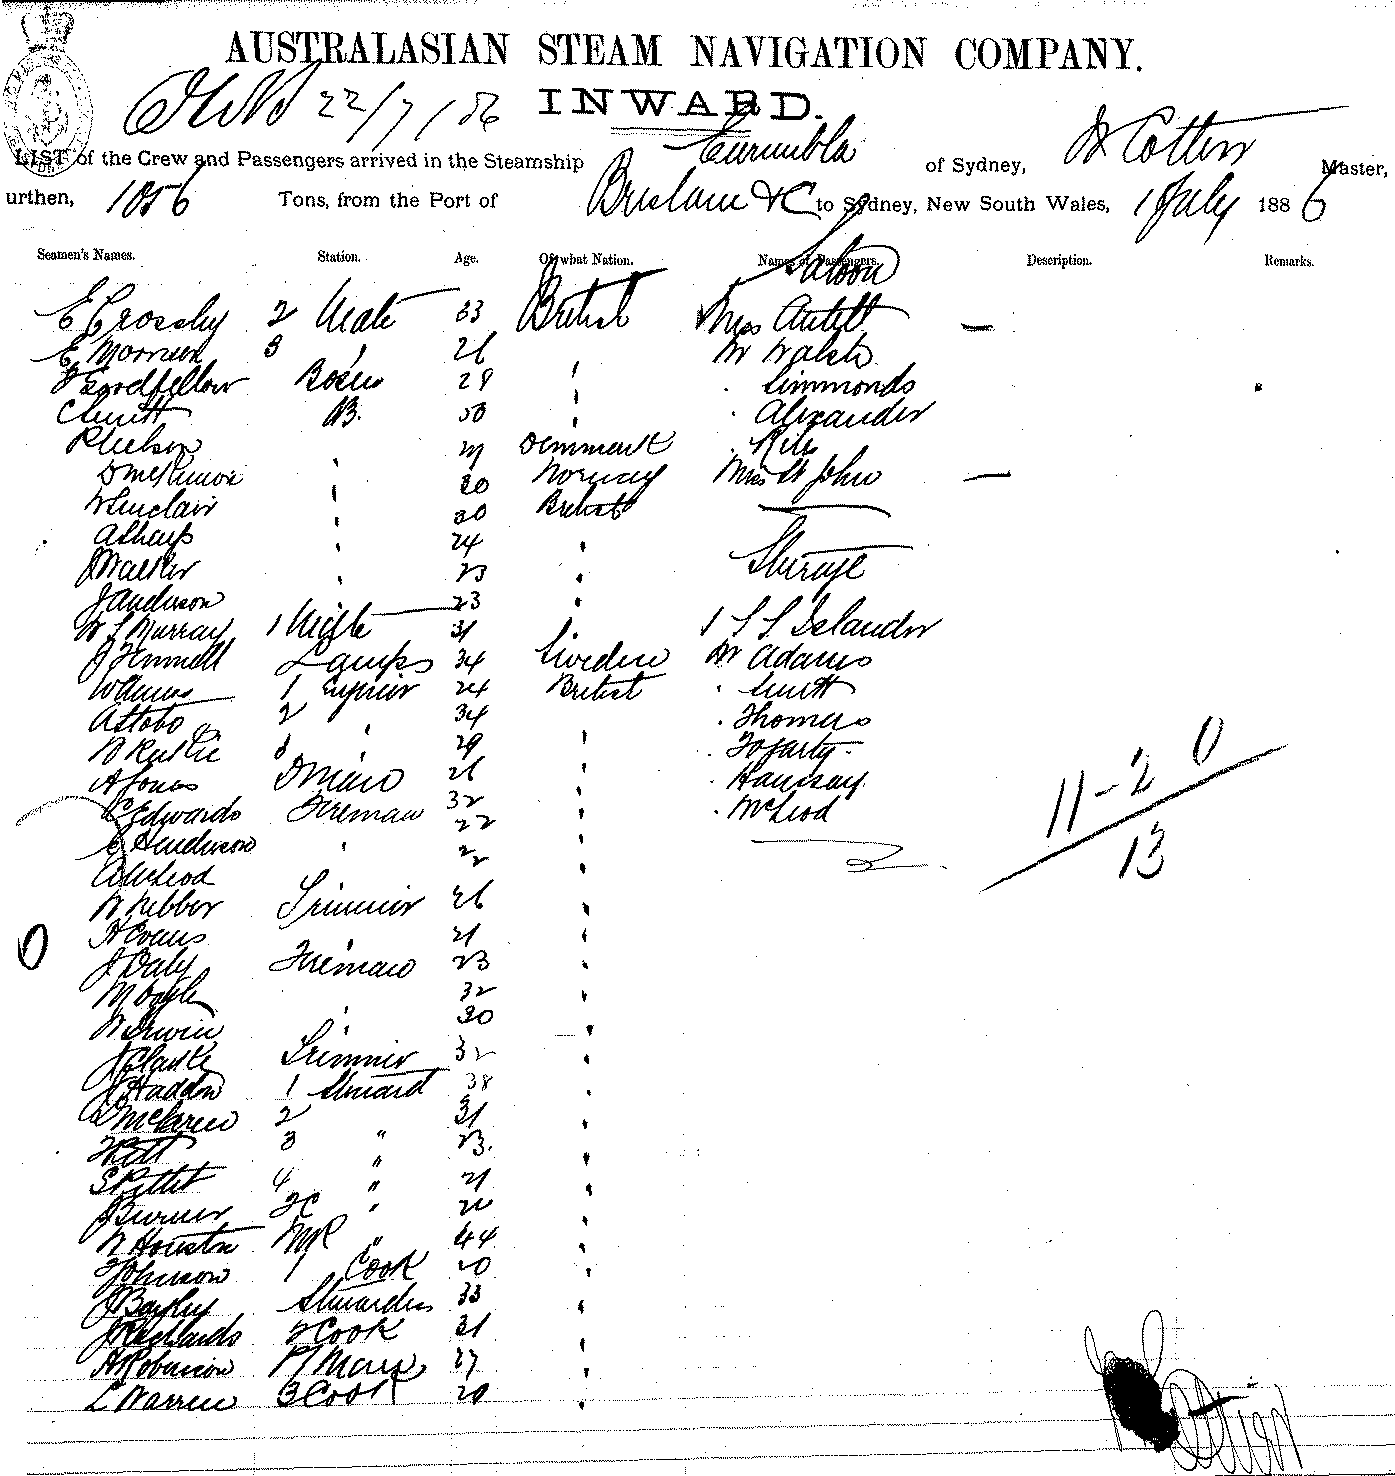 AUSTRALASIAN STEAM NAVIGATION COMPANY.
22/7/86 INWARD.
LIST of the Crew and Passengers arrived in the Steamship Eurimbla of Sydney, Cotter Master,
urthen, 1056 Tons, from the Port of Brisbane &C to Sydney, New South Wales, 1 July 1886
Seamen's Names. Station. Age. Of what Nation. Names of Passengers. Description. Remarks.
Saloon
E Crossby 2 Mate 33 British Miss
E Morrison 3 " 26 Mr Walsh
Goodfellow Bosun 29 " Simmonds
C Smith AB. 50 " Alexander
P Nielson " 27 Denmark
D McKinnon " 30 Norway Mrs St John
W Sinclair " 30 British
A Sharp " 24 "
J Walker " 23 " Steerage
J Anderson 23 "
W S Murray 1 Mate 31 1 S S Islander
J Fennell Lamps 34 Sweden Mr Adams
Williams 1 Engineer 24 British " Smith
2 34 " Thomas
3 " 29 " " Fogarty
A Jones D man 26 " " Ramsay
C Edwards Fireman 32 " " McLeod
E Henderson " 22 "
A McLeod 22 "
11-2 0
13
W Webber Trimmer 26 "
H Evans " 21 "
J Daly Fireman 23 "
M Boyle 32 "
W Irwin " 30 "
J Clarke Trimmer 32 "
J Haddon 1 Steward 38 "
D McLaren 2 31 "
3 " 23. "
S Pettit 4 " 21 "
J Turner 2C " "
W Houston MR " 44 "
Johnson 1 Cook 20 "
J Bayley Stewardess 33 "
J Richards 2 Cook 31 "
A Robinson P/Man 27 "
L Warren 3 Cook 20 "